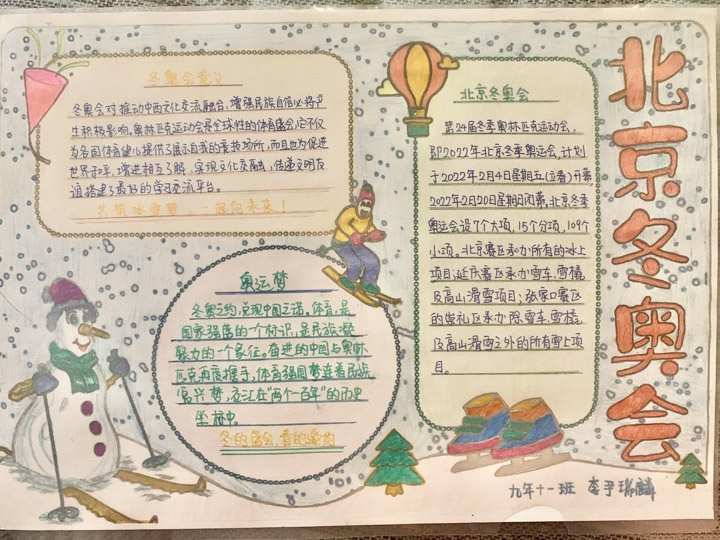 北京冬奥会
冬奥会意义
冬奥会对推动中西文化交流融合、增强民族自信必将产
生积极影响，奥林匹克运动会是全球性的体育盛会，它不仅
为各国体育健儿提供了展示自我的竞技场所，而且也为促进
世界和平、增进相互了解、实现文化交融、传递文明友
谊搭建了最好的学习交流平台。
一起向未来！
北京冬奥会
第24届冬季奥林匹克运动会，
即2022年北京冬季奥运会，计划
于2022年2月4日星期五（立春）开幕
2022年2月20日星期日闭幕。北京冬季
奥运会设7个大项，15个分项，109个
小项。北京赛区承办所有的冰上
项目；延庆赛区承办雪车、雪橇
及高山滑雪项目；张家口赛区
的崇礼区承办除雪车、雪橇
及高山滑雪之外的所有雪上项
目。
奥运梦
冬奥之约，兑现中国之诺。体育，是
国家强盛的一个标识，是民族凝
聚力的一个象征。奋进的中国与奥林
匹克再度携手，体育强国梦连着民族
复兴梦，交汇在“两个一百年”的历史
坐标中。
冬的盛会，春的邀约
九年十一班 李尹瑞麟